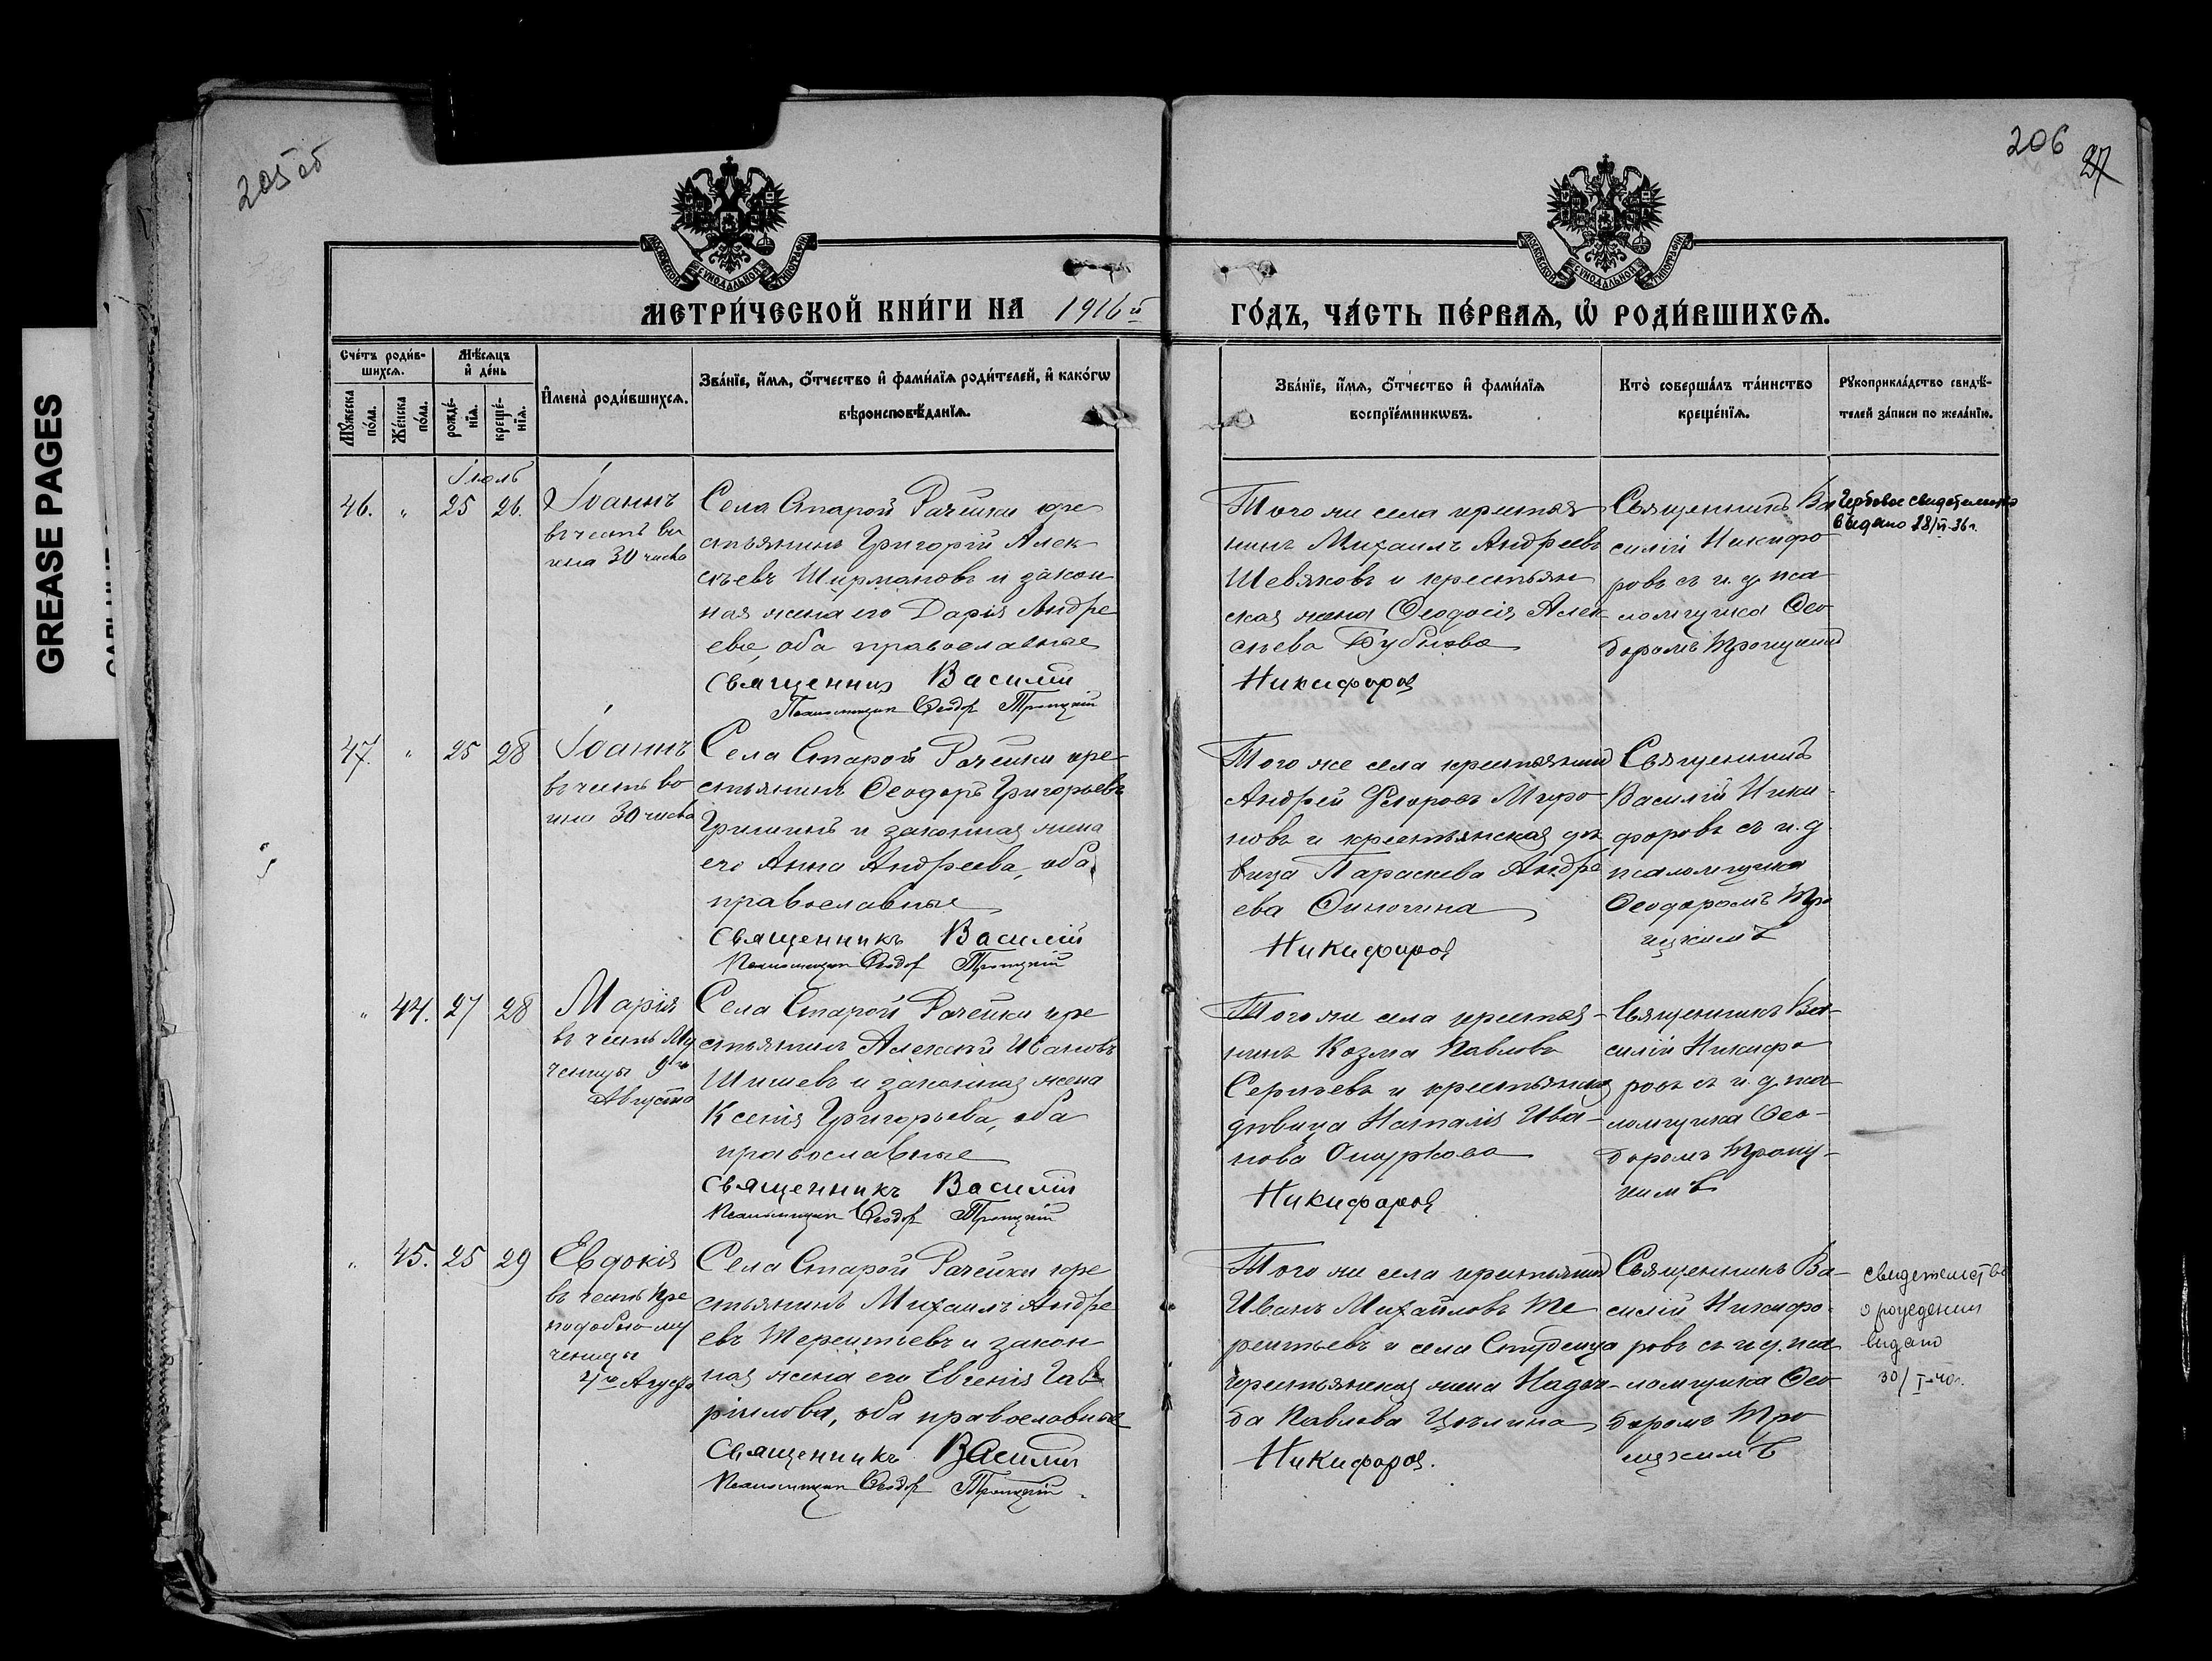 GREASE PAGES
205 об
206
27
МОСКОВСКОЙ СѴНОДАЛЬНОЙ ТИПОГРАФІИ
МОСКОВСКОЙ СѴНОДАЛЬНОЙ ТИПОГРАФІИ
МЕТРИ́ЧЕСКОЙ КНИ́ГИ НА 1916й ГО́ДЪ, ЧА́СТЬ ПЕ́РВАѦ, Ѡ҆ РОДИ́ВШИХСѦ.
Сче́тъ роди́в-
шихсѧ.
Мѣ́сѧцъ
и҆ де́нь
Мꙋ́жеска
по́ла.
Же́нска
по́ла.
рожде́-
нїѧ.
креще́-
нїѧ.
И҆мена̀ роди́вшихсѧ.
Зва́нїе, и҆́мѧ, ѻ҆́тчество и҆ фами́лїѧ роди́телей, и҆ како́гѡ
вѣроисповѣ́данїѧ.
Зва́нїе, и҆́мѧ, ѻ҆́тчество и҆ фами́лїѧ
воспрїе́мникѡвъ.
Кто̀ соверша́лъ та́инство
креще́нїѧ.
Рꙋкоприкла́дство свидѣ́-
телей за́писи по жела́нїю.
Іюль
46. " 25 26.
Іоаннъ
въ честь во
ина 30 числа
Села Старой Рачейки кре
стьянинъ Григорій Алек
сѣевъ Ширмановъ и закон
ная жена его Дарія Андре
ева, оба православные
Священник Василій
Псаломщик Ѳеодор Троицкій
Того же села крестья
нинъ Михаилъ Андреевъ
Шевяковъ и крестьян
ская жена Ѳеодосія Алек
сѣева Бубнова
Никифоров
Священникъ Ва
силій Никифо
ровъ съ и. д. пса
ломщика Ѳео
доромъ Троицким
Гербовое свидетельство
выдано 28/VI-36 г.
47. " 25 28
Іоаннъ
въ честь во
ина 30 числа
Села Старой Рачейки кре
стьянинъ Ѳеодоръ Григорьевъ
Гришинъ и законная жена
его Анна Андреева, оба
православные
Священникъ Василій
Псаломщик Ѳеодор Троицкій
Того же села крестьянинъ
Андрей Ѳеодоровъ Миро
новъ и крестьянская дѣ
вица Параскева Андре
ева Синогина
Никифоров
Священникъ
Василій Ники
форовъ съ и. д
псаломщика
Ѳеодоромъ Тро
ицкимъ
" 44. 27 28
Марія
въ честь му
ченицы 9го
Августа
Села Старой Рачейки кре
стьянинъ Алексѣй Ивановъ
Шишевъ и законная жена
Ксенія Григорьева, оба
православные
Священникъ Василій
Псаломщик Ѳеодор Троицкій
Того же села крестья-
нинъ Козма Павловъ
Сергѣевъ и крестьянская
дѣвица Наталія Ива-
нова
Никифоров
Священникъ Ва-
силій Никифо
ровъ съ и. д. пса-
ломщика Ѳео-
доромъ Троиц-
кимъ
" 45. 25 29
Евдокія
въ честь Пре
подобно му
ченицы
Села Старой Рачейки кре
стьянинъ Михаилъ Андре
евъ Терентьевъ и закон
ная жена его Евгенія Гав
рилова, оба православные
Священникъ Василій
Псаломщик Ѳеодор Троицкій
Того же села крестьянинъ
Иванъ Михайловъ Те
рентьевъ и села Студенца
крестьянская жена Надеж-
да Павлова Цѣлина
Никифоров.
Священникъ Ва-
силій Никифо-
ровъ съ и д. пса
ломщика Ѳео
доромъ Тро
ицкимъ
свидетельство
о рождении
видано
30/I-40г.